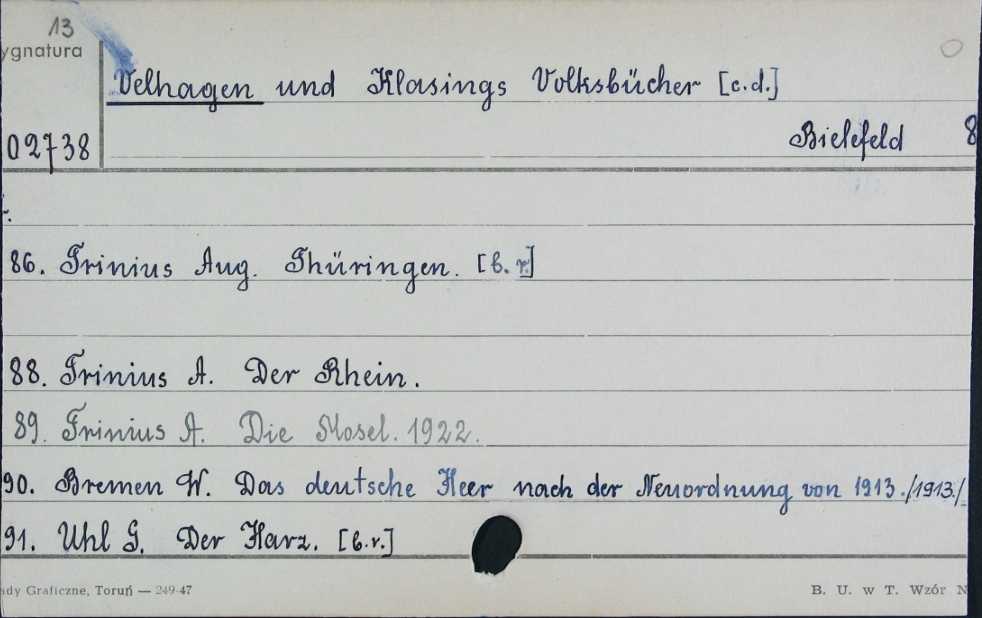 13
ygnatura
Velhagen und Klasings Volksbücher [c.d.]
02738
Bielefeld 8
r.
86. Trinius Aug. Thüringen. [b.r.]
88. Trinius A. Der Rhein.
89. Trinius A. Die Mosel. 1922.
90. Bremen W. Das deutsche Heer nach der Neuordnung von 1913. /1913./
91. Uhl G. Der Harz. [b.r.]
ady Graficzne, Toruń — 249-47
B. U. w T. Wzór N